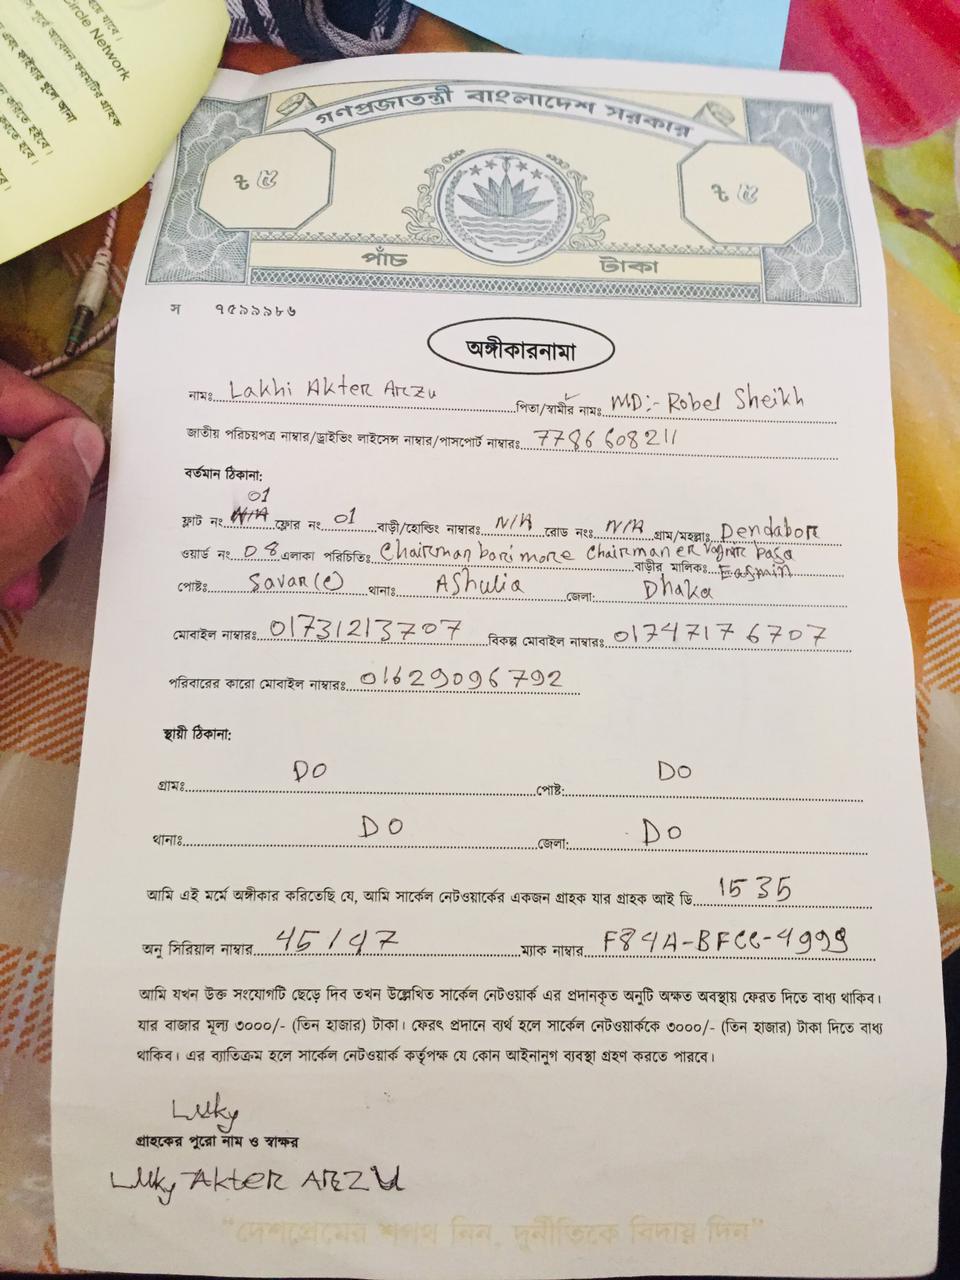 Circle Network
গণপ্রজাতন্ত্রী বাংলাদেশ সরকার
৳ ৫ ৳ ৫
পাঁচ টাকা
স ৭৫৯৯৯৮৬
অঙ্গীকারনামা
নামঃ Lakhi Akter Arzu পিতা/স্বামীর নামঃ MD:- Robel Sheikh
জাতীয় পরিচয়পত্র নাম্বার/ড্রাইভিং লাইসেন্স নাম্বার/পাসপোর্ট নাম্বারঃ 7786608211
বর্তমান ঠিকানা:
01
ফ্লাট নং N/A ফ্লোর নং 01 বাড়ী/হোল্ডিং নাম্বারঃ N/A রোড নংঃ N/A গ্রাম/মহল্লাঃ Dendabor
ওয়ার্ড নং 08 এলাকা পরিচিতিঃ Chairman bari more Chairman er বাড়ীর মালিকঃ
পোষ্টঃ Savar(c) থানাঃ AShulia জেলা: Dhaka
মোবাইল নাম্বারঃ 01731213707 বিকল্প মোবাইল নাম্বারঃ 01747176707
পরিবারের কারো মোবাইল নাম্বারঃ 01629096792
স্থায়ী ঠিকানা:
গ্রামঃ DO পোষ্ট: DO
থানাঃ DO জেলা: DO
আমি এই মর্মে অঙ্গীকার করিতেছি যে, আমি সার্কেল নেটওয়ার্কের একজন গ্রাহক যার গ্রাহক আই ডি 1535
অনু সিরিয়াল নাম্বার 45/47 ম্যাক নাম্বার F84A-BFCC-4999
আমি যখন উক্ত সংযোগটি ছেড়ে দিব তখন উল্লেখিত সার্কেল নেটওয়ার্ক এর প্রদানকৃত অনুটি অক্ষত অবস্থায় ফেরত দিতে বাধ্য থাকিব।
যার বাজার মূল্য ৩০০০/- (তিন হাজার) টাকা। ফেরৎ প্রদানে ব্যর্থ হলে সার্কেল নেটওয়ার্ককে ৩০০০/- (তিন হাজার) টাকা দিতে বাধ্য
থাকিব। এর ব্যাতিক্রম হলে সার্কেল নেটওয়ার্ক কর্তৃপক্ষ যে কোন আইনানুগ ব্যবস্থা গ্রহণ করতে পারবে।
Luky
গ্রাহকের পুরো নাম ও স্বাক্ষর
Luky Akter ArZu
"দেশপ্রেমের শপথ নিন, দুর্নীতিকে বিদায় দিন"